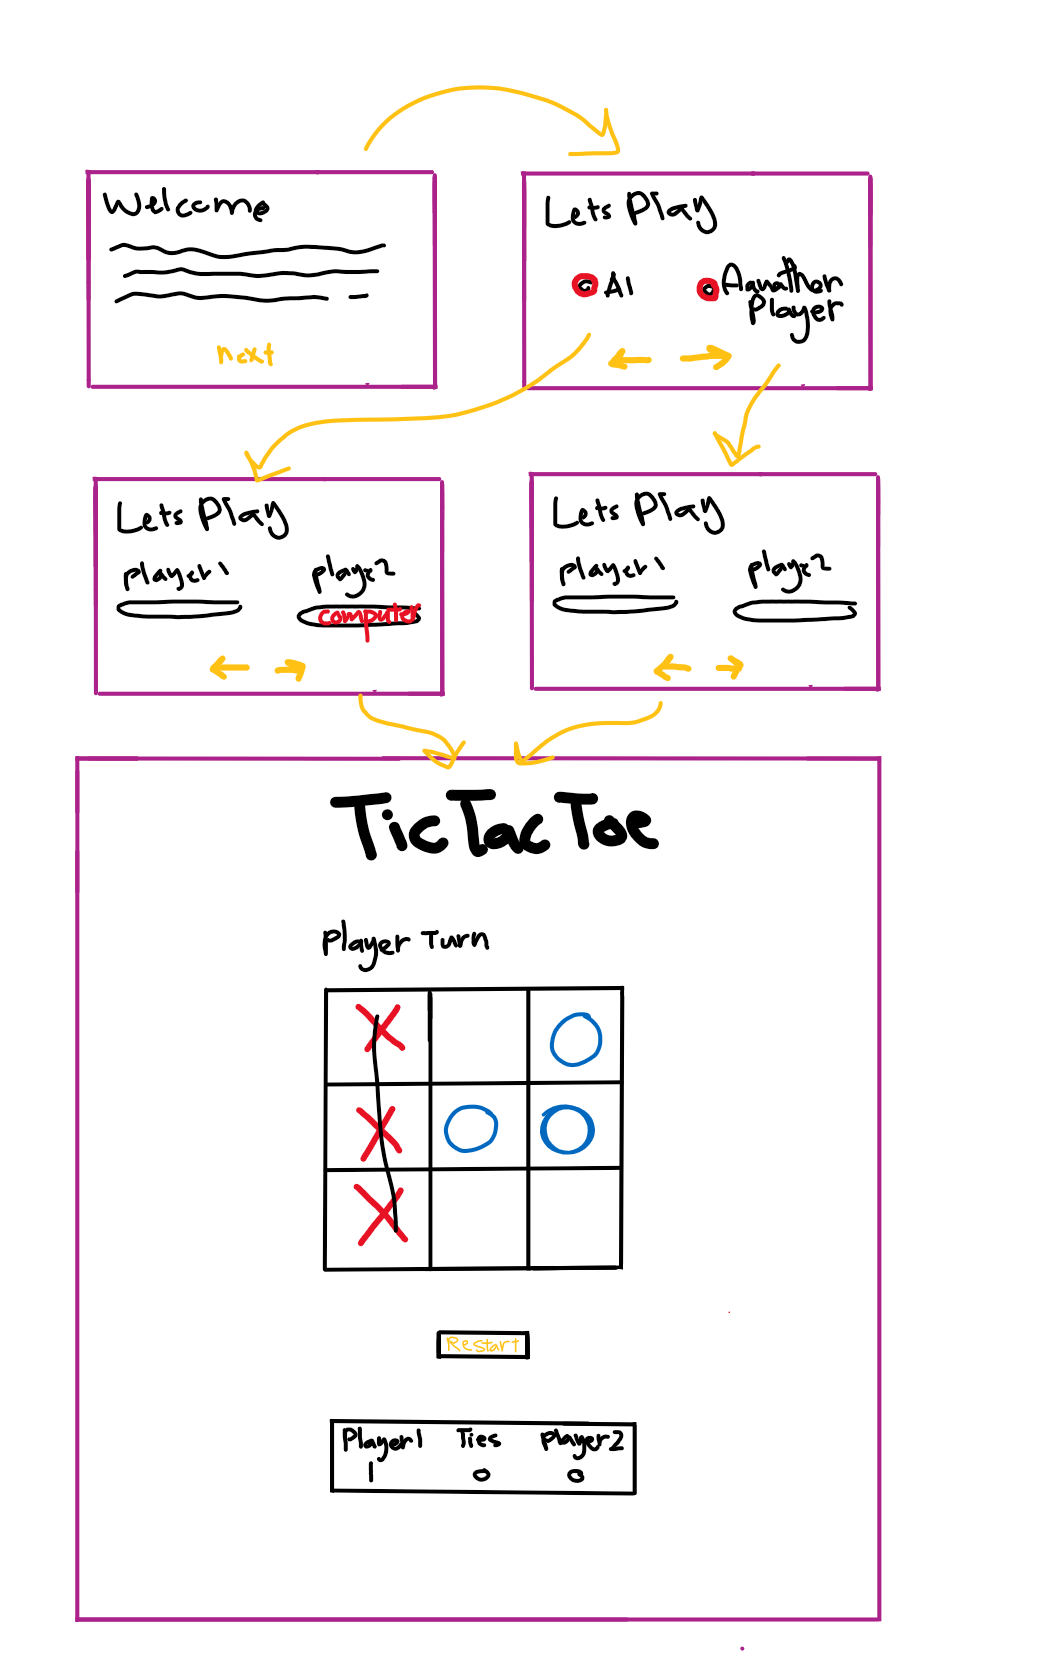 Welcome
next
Lets Play
AI
Aanather
Player
Lets Play
player1
playe2
computer
Lets Play
player1
playe2
TicTacToe
Player Turn
X
O
X
O
O
X
Restart
Player1 Ties player2
1 0 0